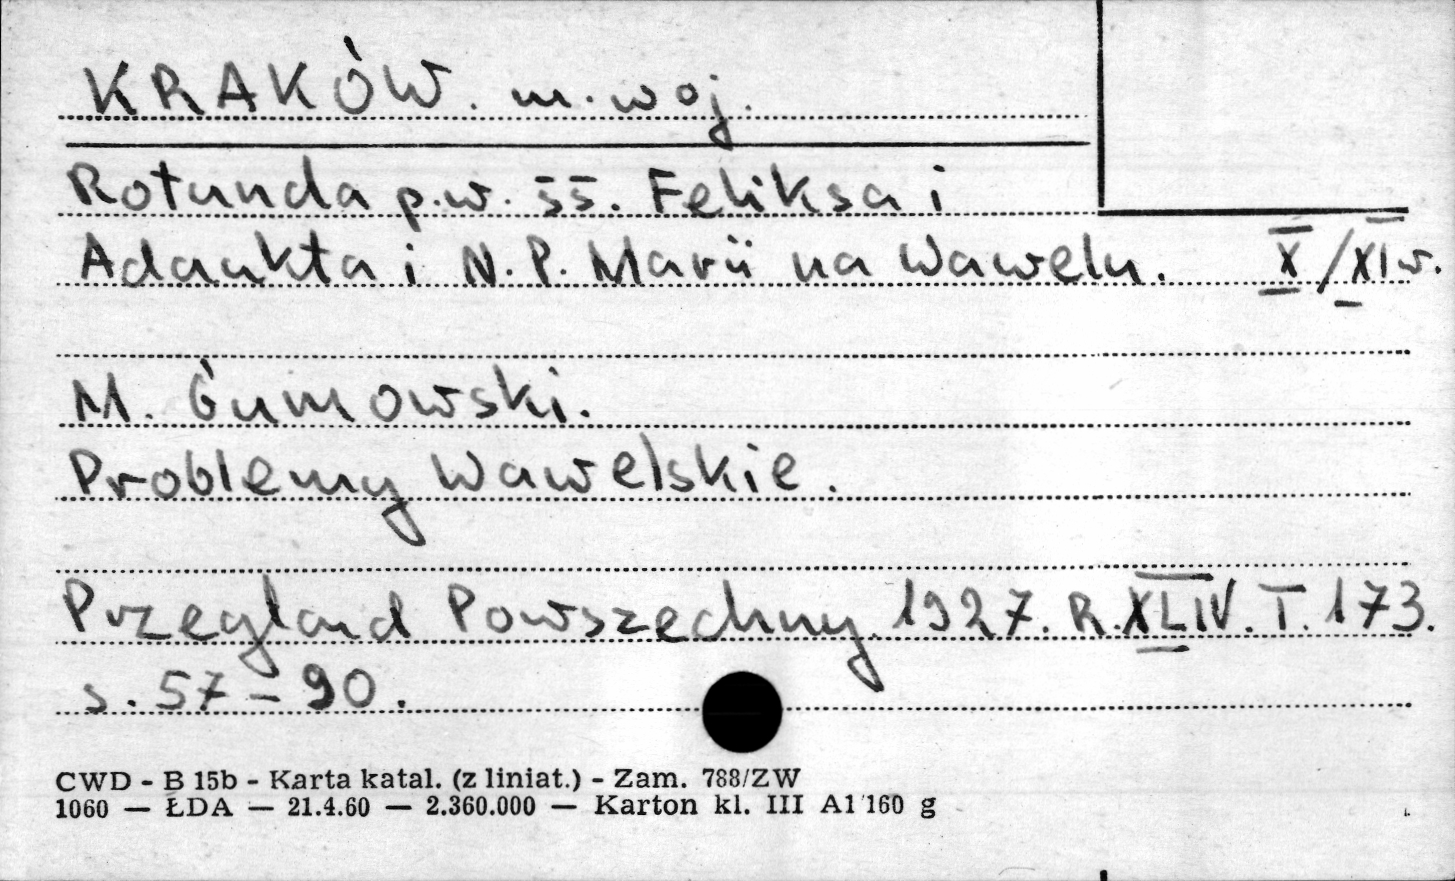 KRAKÓW. m. woj.
Rotunda p.w. śś. Feliksa i
Adaukta i N.P. Marii na Wawelu. X/XI w.
M. Gumowski.
Problemy Wawelskie.
Przegland Powszechny. 1927. R. XLIV. T. 173.
s. 57-90.
CWD - B 15b - Karta katal. (z liniat.) - Zam. 788/ZW
1060 — ŁDA — 21.4.60 — 2.360.000 — Karton kl. III A1 160 g